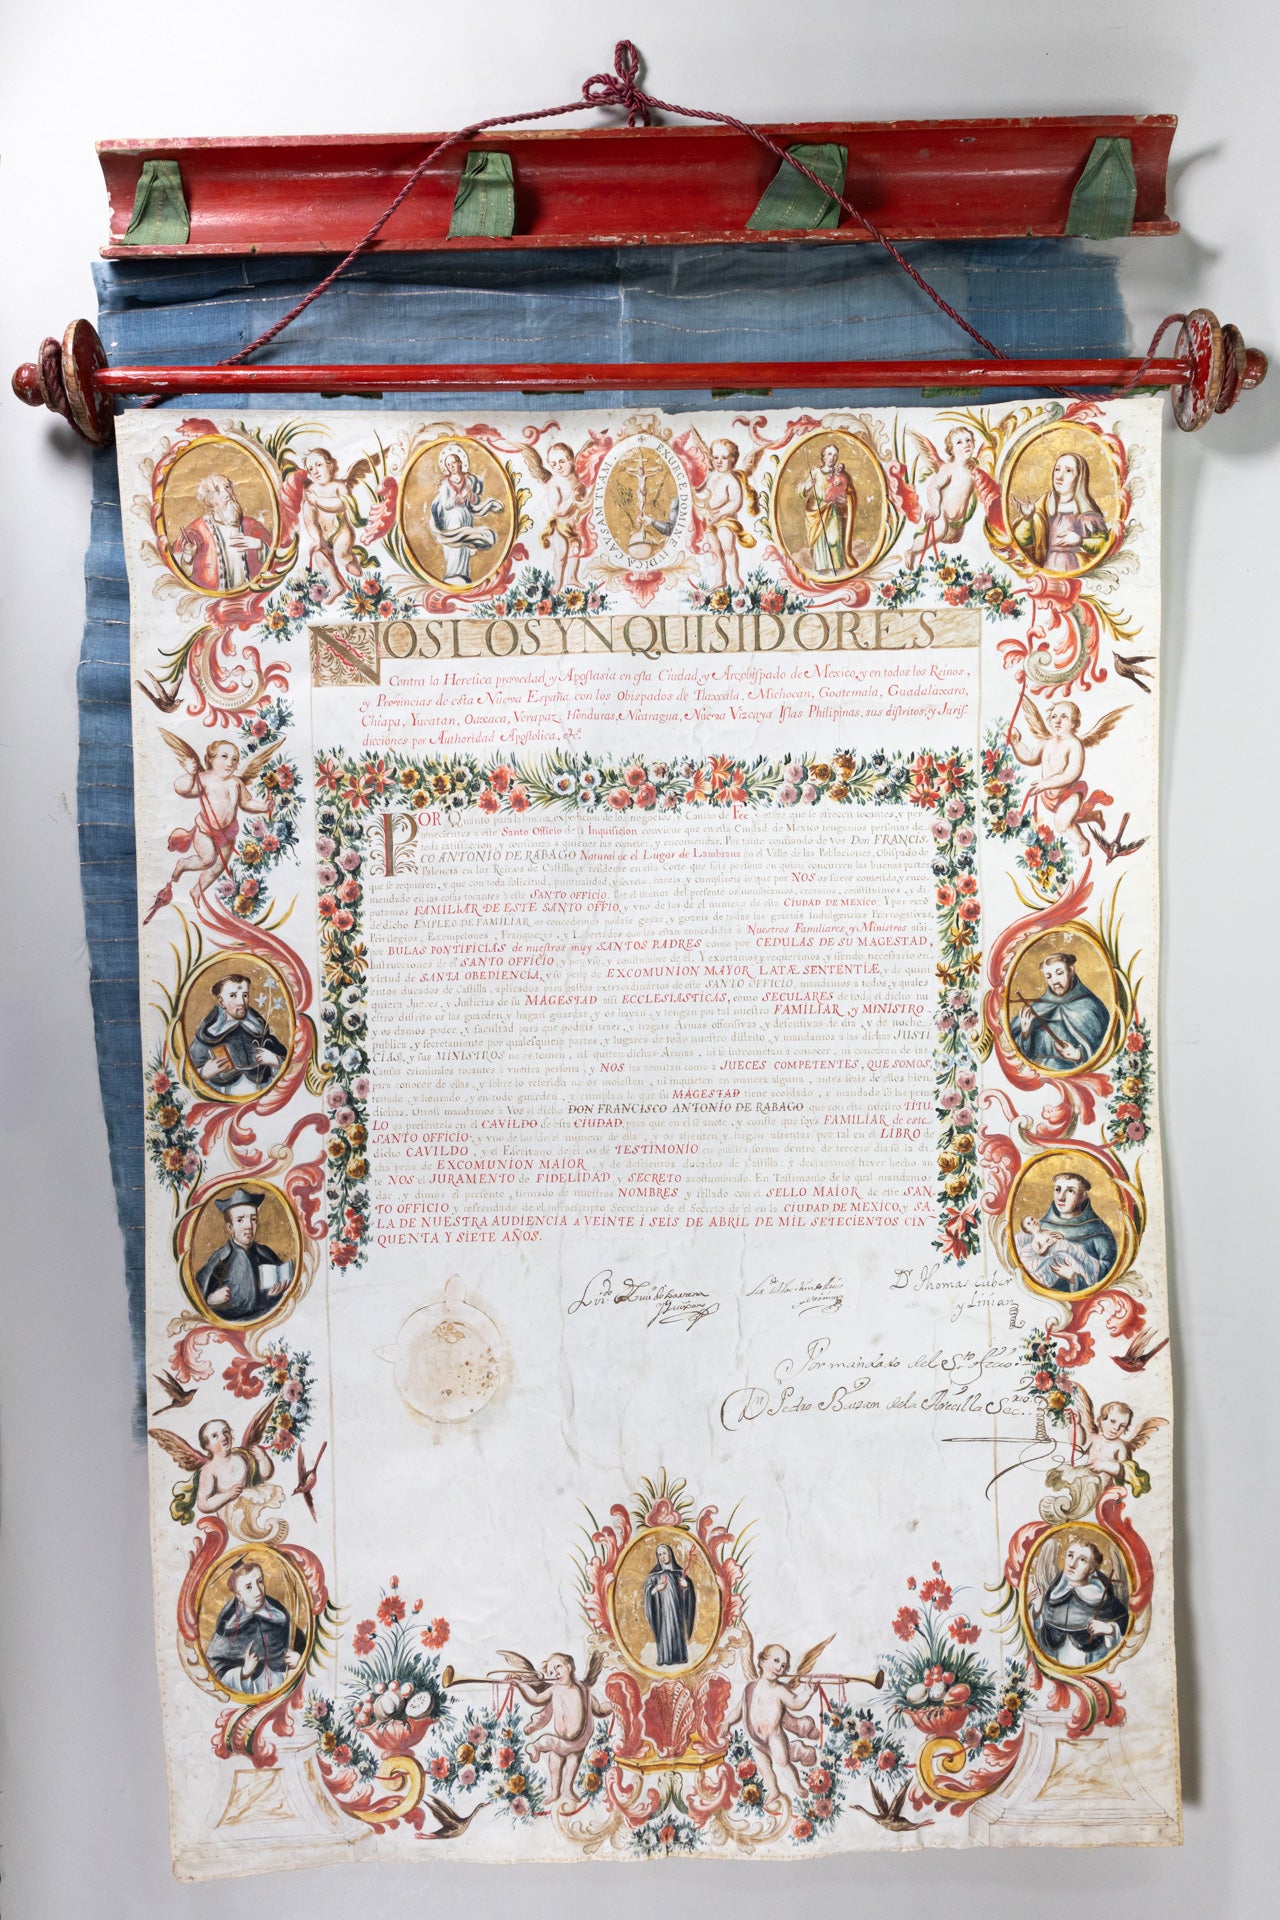 EXURGE DOMINE IUDICA CAUSAM TUAM
NOS LOS YNQUISIDORES
Contra la Heretica pravedad, y Apostasia en esta Ciudad, y Arzobispado de Mexico, y en todos los Reinos,
y Provincias de esta Nueva España con los Obispados de Tlaxcala, Michocan, Goatemala, Guadalaxara,
Chiapa, Yucatan, Oaxaca, Verapaz, Honduras, Nicaragua, Nueva Vizcaya Islas Philipinas, sus distritos, y Juris-
dicciones por Authoridad Apostolica, &c.
POR Quanto para la buena expedicion de los negocios, y Causas de Fee, y otras que se ofrecen tocantes, y per
tenecientes a este Santo Officio de la Inquisicion conviene que en esta Ciudad de Mexico tengamos personas de
toda satisfaccion, y confianza a quienes las cometer, y encomendar. Por tanto confiando de Vos Don FRANCIS-
CO ANTONIO DE RABAGO Natural de el Lugar de Lambrana en el Valle de las Poblaciones, Obispado de
Palencia en los Reinos de Castilla, y residente en esta Corte que sois persona en quien concurren las buenas partes
que se requieren, y que con toda solicitud, puntualidad, y secreto, hareis y cumplireis lo que por NOS os fuere cometido, y enco
mendado en las cosas tocantes à este SANTO OFFICIO. Por el thenor del presente os nombramos, creamos, constituimos, y di
putamos FAMILIAR DE ESTE SANTO OFFIO, y vno de los de el numero de esta CIUDAD DE MEXICO. Y por razõ
de dicho EMPLEO DE FAMILIAR os concedemos podais gozar, y gozeis de todas las gracias Indulgencias Prerrogativas,
Privilegios, Exempciones, Franquezas, y Libertades que les estan concedidas à Nuestros Familiares, y Ministros assi
por BULAS PONTIFICIAS de nuestros muy SANTOS PADRES como por CEDULAS DE SU MAGESTAD,
Instrucciones de el SANTO OFFICIO, y por vso, y costumbre de él. Y exortamos, y requerimos, y siendo necessario en
virtud de SANTA OBEDIENCIA, y so pena de EXCOMUNION MAYOR LATÆ SENTENTIÆ, y de quini
entos ducados de Castilla, aplicados para gastos extraordinarios de este SANTO OFFICIO, mandamos a todos, y quales
quiera Jueces, y Justicias de su MAGESTAD assi ECCLESIASTICAS, como SECULARES de todo el dicho nu
estro distrito os las guarden, y hagan guardar, y os hayan, y tengan por tal nuestro FAMILIAR, y MINISTRO
y os damos poder, y facultad para que podais traer, y traigais Armas offensivas, y defensivas de dia, y de noche,
publica, y secretamente por qualesquiera partes, y lugares de todo nuestro distrito, y mandamos a las dichas JUSTI
CIAS, y sus MINISTROS no os tomen, ni quiten dichas Armas, ni se intrometan a conocer, ni conozcan de las
Causas criminales tocantes à vuestra persona, y NOS las remitan como a JUECES COMPETENTES, QUE SOMOS,
para conocer de ellas, y sobre lo referido no os molesten, ni inquieten en manera alguna, antes seais de ellos bien
tratado, y honrado, y en todo guarden, y cumplan lo que su MAGESTAD tiene acordado, y mandado so las penas
dichas. Otrosi mandamos à Vos el dicho DON FRANCISCO ANTONIO DE RABAGO que con este nuestro TITU
LO os presenteis en el CAVILDO de esta CIUDAD, para que en el se anote, y conste que soys FAMILIAR de este
SANTO OFFICIO, y vno de los de el numero de ella, y os assienten, y hagan assentar por tal en el LIBRO de
dicho CAVILDO, y el Escrivano de el os de TESTIMONIO en publica forma dentro de tercero dia so la di
cha pena de EXCOMUNION MAIOR, y de doscientos ducados de Castilla, y declaramos haver hecho an
te NOS el JURAMENTO de FIDELIDAD, y SECRETO acostumbrado. En Testimonio de lo qual mandamos
dar, y dimos el presente, firmado de nuestros NOMBRES, y sellado con el SELLO MAIOR de este SAN-
TO OFFICIO y refrendado de el infraescripto Secretario de el Secreto de el en la CIUDAD DE MEXICO, y SA-
LA DE NUESTRA AUDIENCIA A VEINTE I SEIS DE ABRIL DE MIL SETECIENTOS CIN-
QUENTA Y SIETE AÑOS.
Dr. Thomas Cuber
y Liñian
Por mandado del Sto. Officio.
Dn. Pedro Bazan de la Arecilla Secrio.